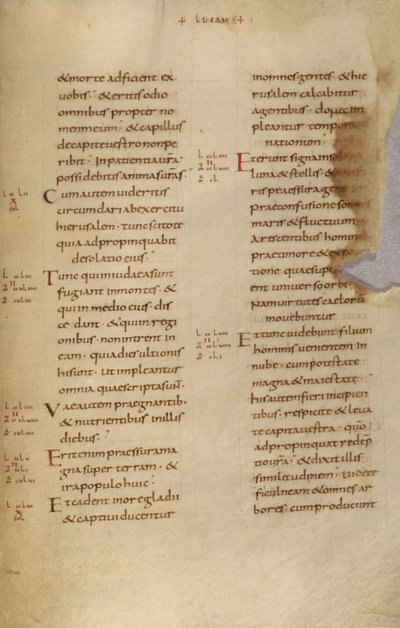 + LUCAM +
& morte adficient ex
uobis · & eritis odio
omnibus propter no
men meum · & capillus
de capite uestro non pe
ribit · In patientia ura
possidebitis animas uras
Cum autem uideritis
circumdari ab exercitu
hierusalem · tunc scitote
quia adpropinquabit
desolatio eius ·
Tunc qui in iudaea sunt
fugiant in montes · &
qui in medio eius · dis
cedant · & qui in regi
onibus non intrent in
eam · quia dies ultionis
hi sunt · Ut impleantur
omnia quae scripta sunt ·
Vae autem praegnantib·
& nutrientibus in illis
diebus ·
Erit enim praessura ma
gna super terram · &
ira populo huic ·
Et cadent in ore gladii
& captiui ducentur
in omnes gentes · & hie
rusalem calcabitur
a gentibus · donec im
pleantur tempora
nationum ·
Et erunt signa in sole
luna & stellis · &
ris praessura gen
prae confusione son
maris & fluctuum
Arescentibus homini
prae timore & exp
tione quae super
ent uniuerso orbi
Nam uirtutes caelorum
mouebuntur
Et tunc uidebunt filium
hominis uenientem in
nube · cum potestate
magna & maiestate ·
his autem fieri incipien
tibus · respicite & leua
te capita uestra · quo
adpropinquat redep
tio ura · & dixit illis
similitudinem · Uidete
ficulneam & omnes ar
bores · cum producunt